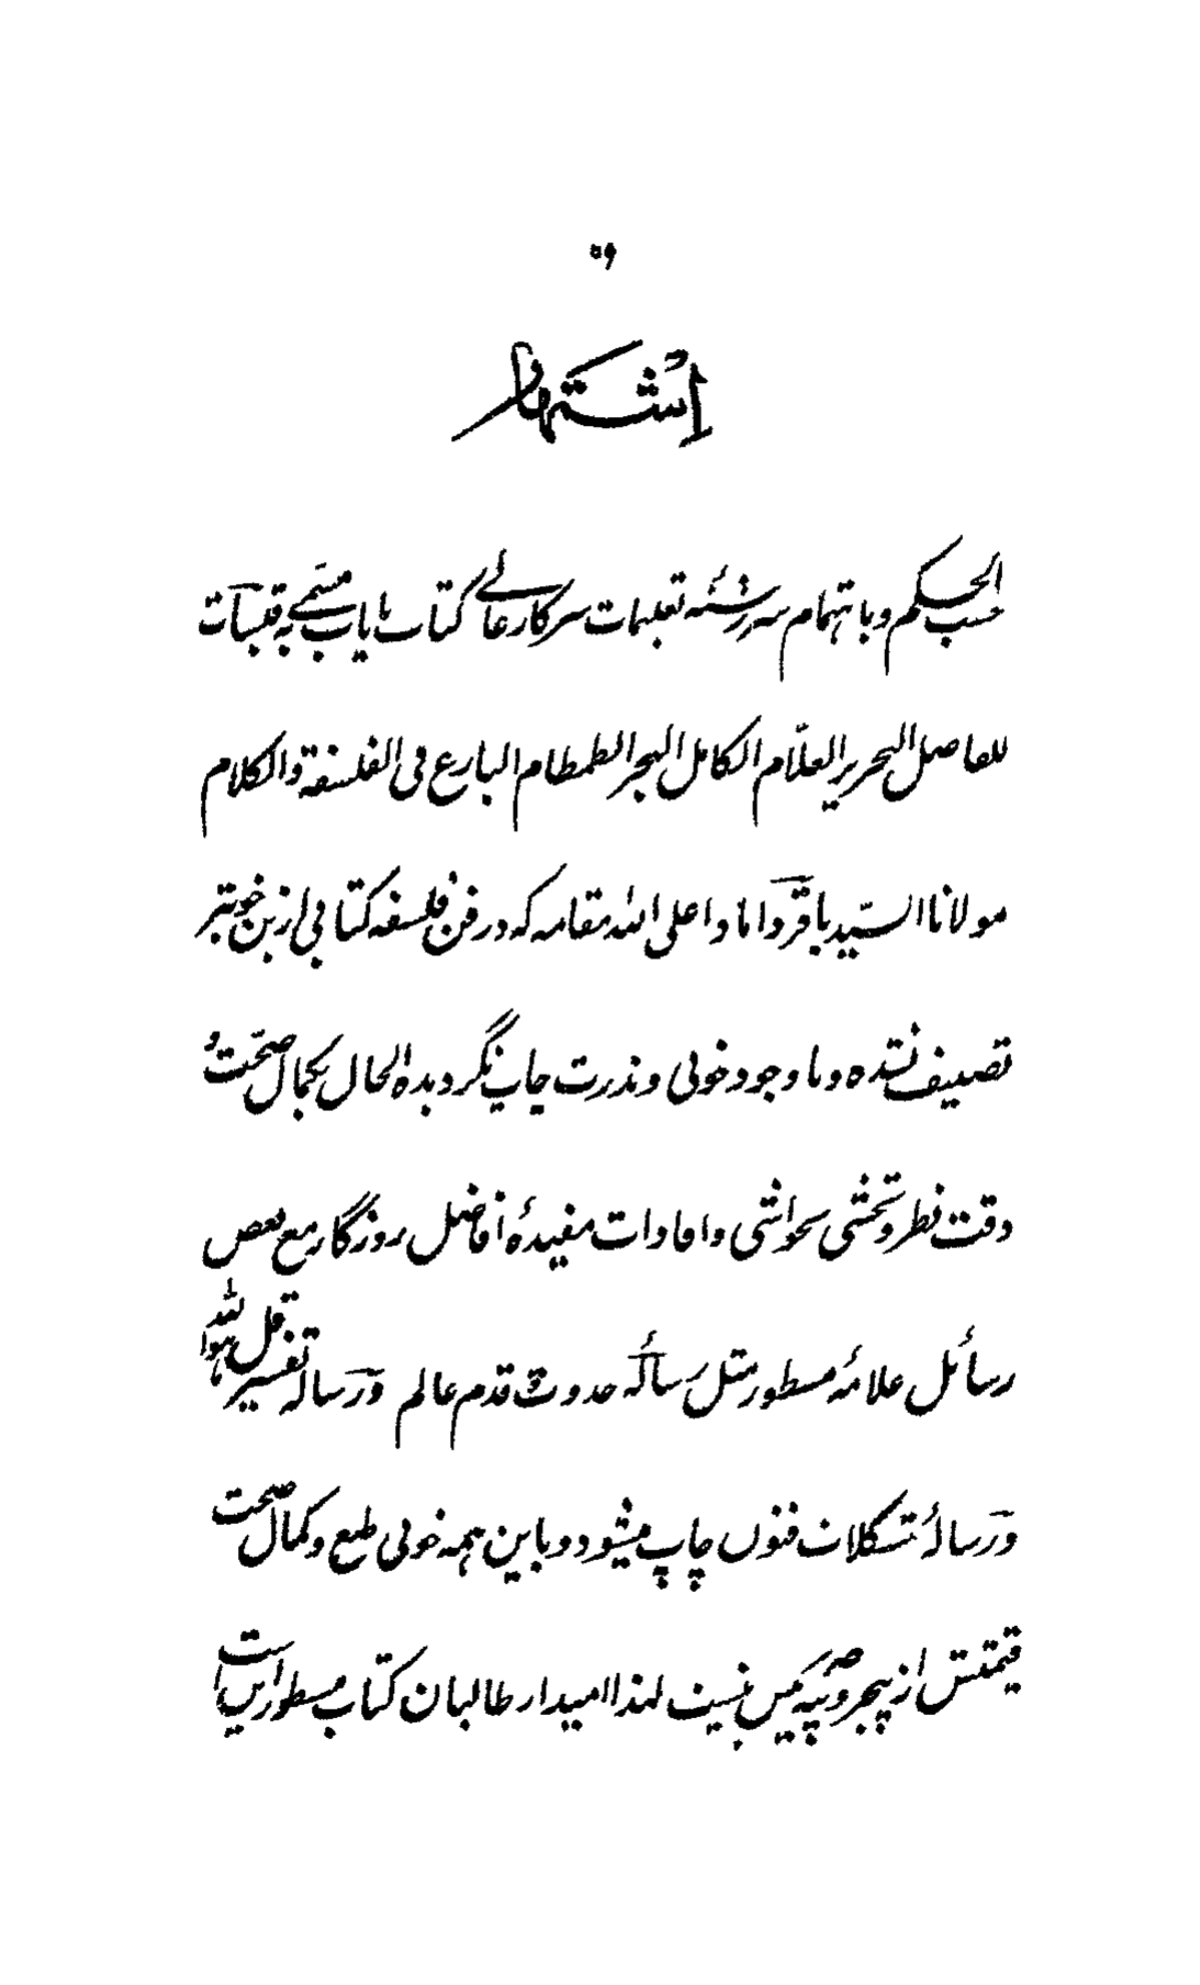 ۵۹
اشتهار
حسب الحکم و باهتمام سررشتهٔ تعلیمات سرکار عالے کتاب نایاب مسمے به قبسات
للفاضل النحریر العلّام الکامل البحر الطمطام البارع فی الفلسفة والکلام
مولانا السیّد باقر داماد اعلی الله مقامه که در فن فلسفه کتابی ازین خوبتر
تصنیف نشده و با وجود خوبی و ندرت چاپ نگردیده الحال بکمال صحّت و
دقت نظر و تحشی بحواشی و افادات مفیدهٔ افاضل روزگار مع بعض
رسائل علامهٔ مسطور مثل رسالهٔ حدوث و قدم عالم و رساله تفسیر قل هو الله
و رسالهٔ مشکلات فنون چاپ میشود و با این همه خوبی طبع و کمال صحت
قیمتش از پنجروپیه بیش نیست لهذا امیدار طالبان کتاب مسطور این است